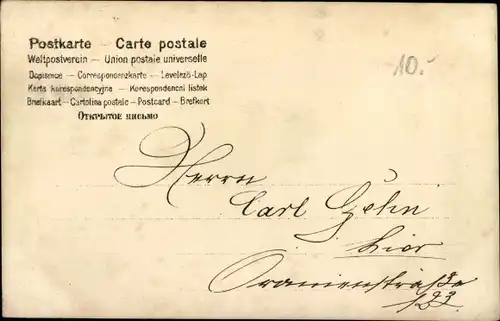 Postkarte – Carte postale
Weltpostverein – Union postale universelle
Dopisnice – Correspondenzkarte – Levelező-Lap
Karta korespondencyjna – Korespondencni listek
Briefkaart – Cartolina postale – Postcard – Brefkort
Открытое письмо
10.-
Herrn
Carl Höhn
hier
Oranienstraße
123